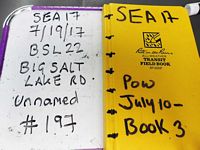 SEA 17
7/19/17
BSL 22
BIG SALT
LAKE RD.
Unnamed
#197
SEA 17
Rite in the Rain
TRANSIT
FIELD BOOK
POW
July 10-
BOOK 3